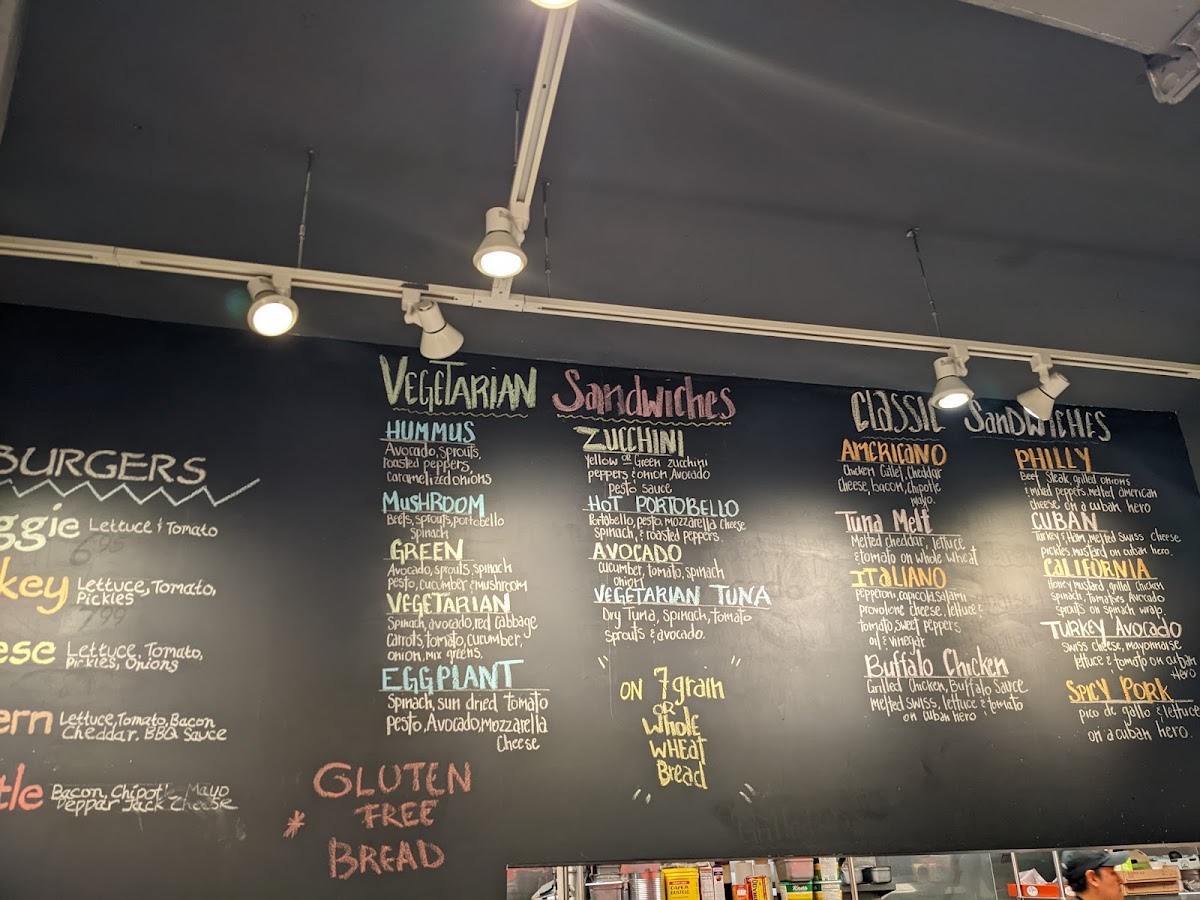 BURGERS
ggie Lettuce & Tomato
6.95
key Lettuce, Tomato,
Pickles
7.99
ese Lettuce, Tomato,
Pickles, Onions
ern Lettuce, Tomato, Bacon
Cheddar. BBQ Sauce
tle Bacon, Chipotle Mayo
Peppar Jack Cheese
VEGETARIAN Sandwiches
HUMMUS
Avocado, sprouts,
roasted peppers,
caramelized onions
MUSHROOM
Beets, sprouts, portobello
spinach
GREEN
Avocado, sprouts, spinach
pesto, cucumber & mushroom
VEGETARIAN
Spinach, avocado, red cabbage
Carrots, tomato, cucumber,
onion, mix greens.
EGGPLANT
Spinach, sun dried Tomato
pesto, Avocado, mozzarella
Cheese
ZUCCHINI
Yellow or Green zucchini
peppers & onion, Avocado
pesto sauce
HOT PORTOBELLO
Portobello, pesto, mozzarella cheese
spinach, & roasted peppers.
AVOCADO
cucumber, tomato, spinach
onion
VEGETARIAN TUNA
Dry Tuna, Spinach, tomato
sprouts & avocado.
ON 7 grain
OR
Whole
WHEAT
Bread
* GLUTEN
FREE
BREAD
Classic SanDWICHES
AMERICANO
Chicken Cutlet, Cheddar
Cheese, bacon, chipotle
mayo.
Tuna Melt
Melted cheddar, lettuce
& tomato on whole wheat
ITALIANO
pepperoni, capicola, salami
provolone cheese, lettuce &
tomato, sweet peppers
oil & vinegar
Buffalo Chicken
Grilled Chicken, Buffalo Sauce
Melted swiss, lettuce & tomato
on cuban hero
PHILLY
Beef Steak, grilled onions
& mixed peppers, melted american
cheese on a cuban hero
CUBAN
Turkey & Ham, melted swiss cheese
pickles, mustard on cuban hero.
CALIFORNIA
Honey mustard, grilled chicken
spinach, tomatoes Avocado
sprouts on spinach wrap.
TURKEY AVOCADO
swiss cheese, mayonnaise
lettuce & tomato on cuban
Hero
SPICY PORK
pico de gallo & lettuce
on a cuban hero.